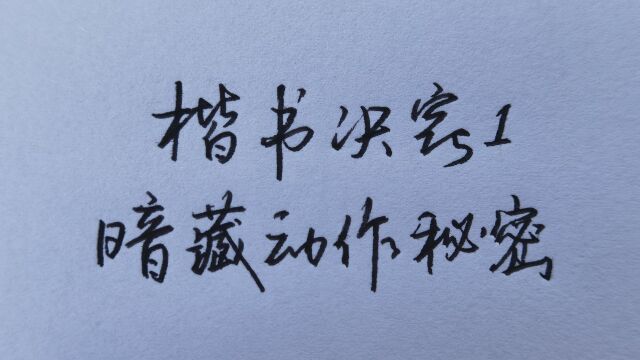 楷书决窍1
暗藏动作秘密